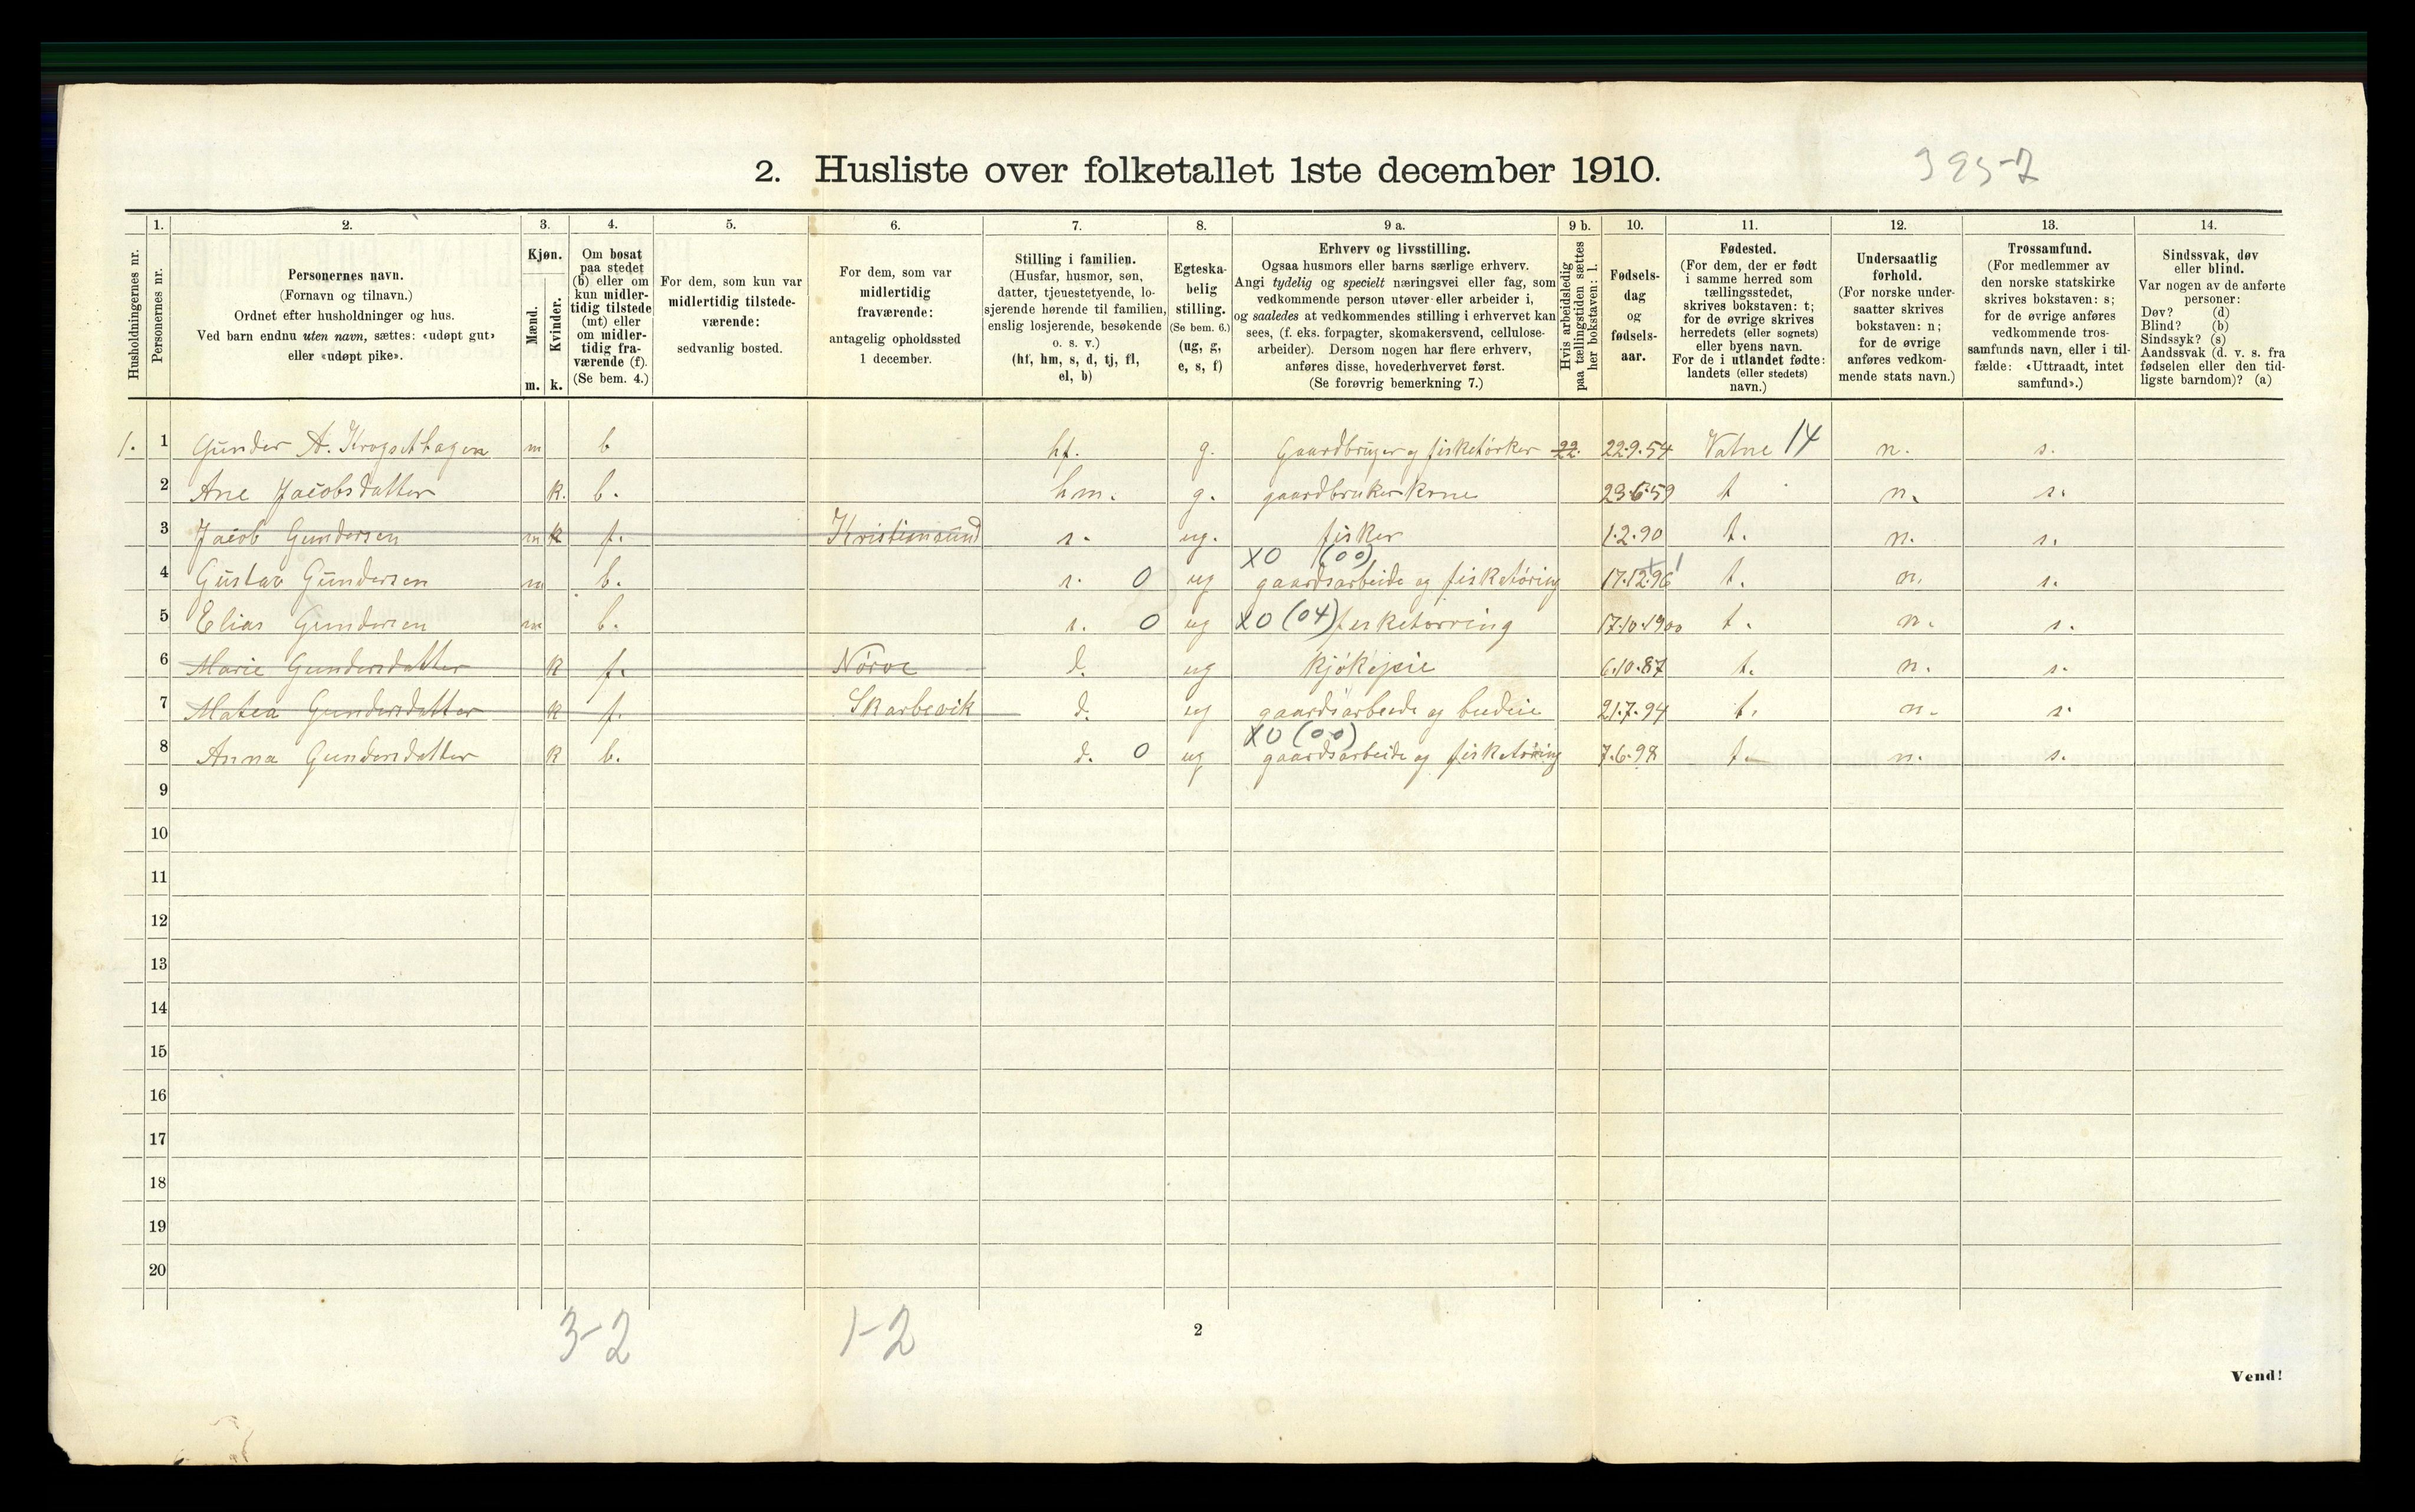 2. Husliste over folketallet 1ste december 1910.
395-2
1. 2. 3. 4. 5. 6. 7. 8. 9 a. 9 b. 10. 11. 12. 13. 14.
Husholdningernes nr.
Personernes nr.
Personernes navn.
(Fornavn og tilnavn.)
Ordnet efter husholdninger og hus.
Ved barn endnu uten navn, sættes: «udøpt gut»
eller «udøpt pike».
Kjøn.
Mænd.
Kvinder.
m. k.
Om bosat
paa stedet
(b) eller om
kun midler-
tidig tilstede
(mt) eller
om midler-
tidig fra-
værende (f).
(Se bem. 4.)
For dem, som kun var
midlertidig tilstede-
værende:
sedvanlig bosted.
For dem, som var
midlertidig
fraværende:
antagelig opholdssted
1 december.
Stilling i familien.
(Husfar, husmor, søn,
datter, tjenestetyende, lo-
sjerende hørende til familien,
enslig losjerende, besøkende
o. s. v.)
(hf, hm, s, d, tj, fl,
el, b)
Egteska-
belig
stilling.
(Se bem. 6.)
(ug, g,
e, s, f)
Erhverv og livsstilling.
Ogsaa husmors eller barns særlige erhverv.
Angi tydelig og specielt næringsvei eller fag, som
vedkommende person utøver eller arbeider i,
og saaledes at vedkommendes stilling i erhvervet kan
sees, (f. eks. forpagter, skomakersvend, cellulose-
arbeider). Dersom nogen har flere erhverv,
anføres disse, hovederhvervet først.
(Se forøvrig bemerkning 7.)
Hvis arbeidsledig
paa tællingstiden sættes
her bokstaven: l.
Fødsels-
dag
og
fødsels-
aar.
Fødested.
(For dem, der er født
i samme herred som
tællingsstedet,
skrives bokstaven: t;
for de øvrige skrives
herredets (eller sognets)
eller byens navn.
For de i utlandet fødte:
landets (eller stedets)
navn.)
Undersaatlig
forhold.
(For norske under-
saatter skrives
bokstaven: n;
for de øvrige
anføres vedkom-
mende stats navn.)
Trossamfund.
(For medlemmer av
den norske statskirke
skrives bokstaven: s;
for de øvrige anføres
vedkommende tros-
samfunds navn, eller i til-
fælde: «Uttraadt, intet
samfund».)
Sindssvak, døv
eller blind.
Var nogen av de anførte
personer:
Døv? (d)
Blind? (b)
Sindssyk? (s)
Aandssvak (d. v. s. fra
fødselen eller den tid-
ligste barndom)? (a)
1. 1 Gunder A. Krogsethagen m b hf. g. Gaardbruger og fisketørker 22. 22.9.54 Vatne 14 n. s.
2 Ane Jacobsdatter k. b. hm. g. gaardbrukerkone 23.6.59 t n. s.
3 Jacob Gundersen m k f. Kristiansund s. ug. fisker 1.2.90 t. n. s.
XO (00)
4 Gustav Gundersen m b. s. 0 ug gaardsarbeide og fisketøring 17.12.96 t. n. s.
5 Elias Gundersen m b. s. 0 ug XO (04) fisketørring 17.10.1900 t. n. s.
6 Marie Gundersdatter k f. Nørve d. ug kjøkepie 6.10.87 t. n. s.
7 Matea Gundersdatter k f. Skarbøvik d. ug gaardsarbeide og budeie 21.7.94 t. n. s.
XO (00)
8 Anna Gundersdatter k b. d. 0 ug gaardsarbeide og fisketøring 7.6.98 t. n. s.
9
10
11
12
13
14
15
16
17
18
19
20
3-2
1-2
2
Vend!